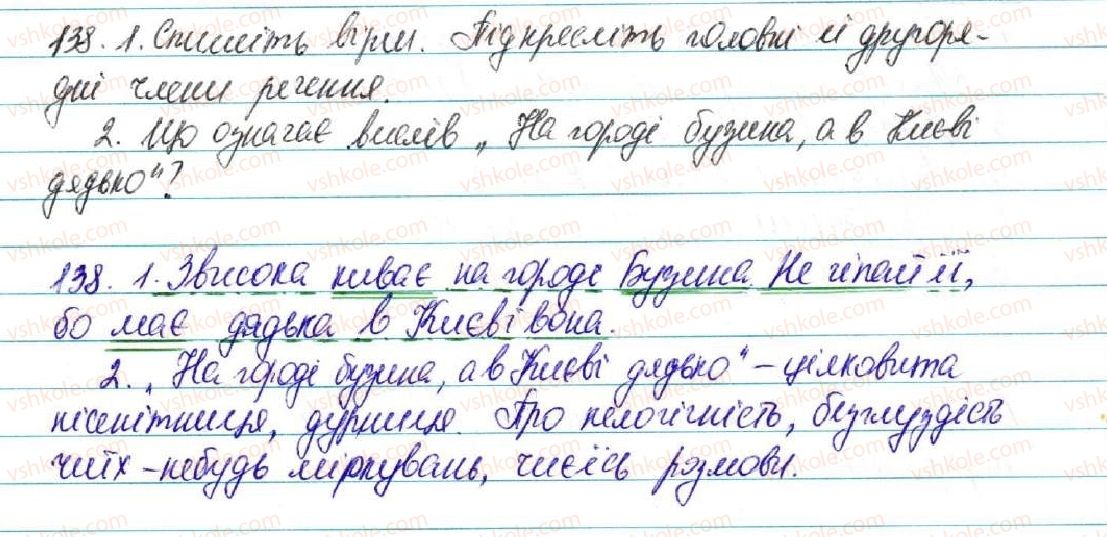 138. 1. Спишіть вірш. Підкресліть головні й другоря-
дні члени речення.
2. Що означає вислів „На городі бузина, а в Києві
дядько"?
138. 1. Звисока киває на городе Бузина. Не чіпай її,
бо має дядька в Києві вона.
2. „На городі бузина, а в Києві дядько" – цілковита
нісенітниця, дурниця. Про нелогічність, безглуздість
чиїх-небудь міркувань, чиєїсь розмови.